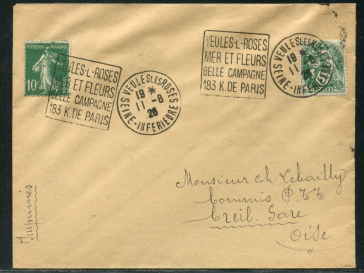 VEULES-L-ROSES
MER ET FLEURS
BELLE CAMPAGNE
183 K. DE PARIS
VEULES LES ROSES
SEINE-INFERIEURE
19 *
11 -8
26
VEULES-L-ROSES
MER ET FLEURS
BELLE CAMPAGNE
183 K. DE PARIS
VEULES LES ROSES
SEINE-INFERIEURE
19
11
10
Imprimés
Monsieur Ch Lebailly
Commis P.T.T
Creil. Gare
Oise